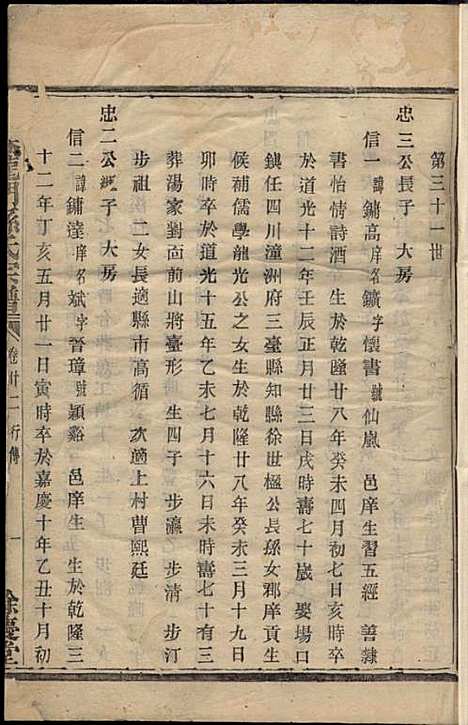 第三十一世
忠三公長子　大房
信一諱鏞高庠名鑛字懷書號仙嵐　邑庠生習五經　善隸
書怡情詩酒　生於乾隆廿八年癸未四月初七日亥時卒
於道光十二年壬辰正月廿三日戌時壽七十歲　娶場口
鎮任四川潼洲府三臺縣知縣徐世楹公長孫女郡庠貢生
候補儒學龍光公之女生於乾隆廿八年癸未三月十九日
卯時卒於道光十五年乙未七月十六日未時壽七十有三
葬湯家劉面前山將臺形　生四子　步瀛　步清　步汀
步祖　二女長適縣市高循　次適上村曹熙廷
忠二公　子　大房
信二諱鏞達庠名斌字晉璋號穎谿　邑庠生　生於乾隆三
十二年丁亥五月廿一日寅時卒於嘉慶十年乙丑十月初
卷廿二行傳
一
餘慶堂